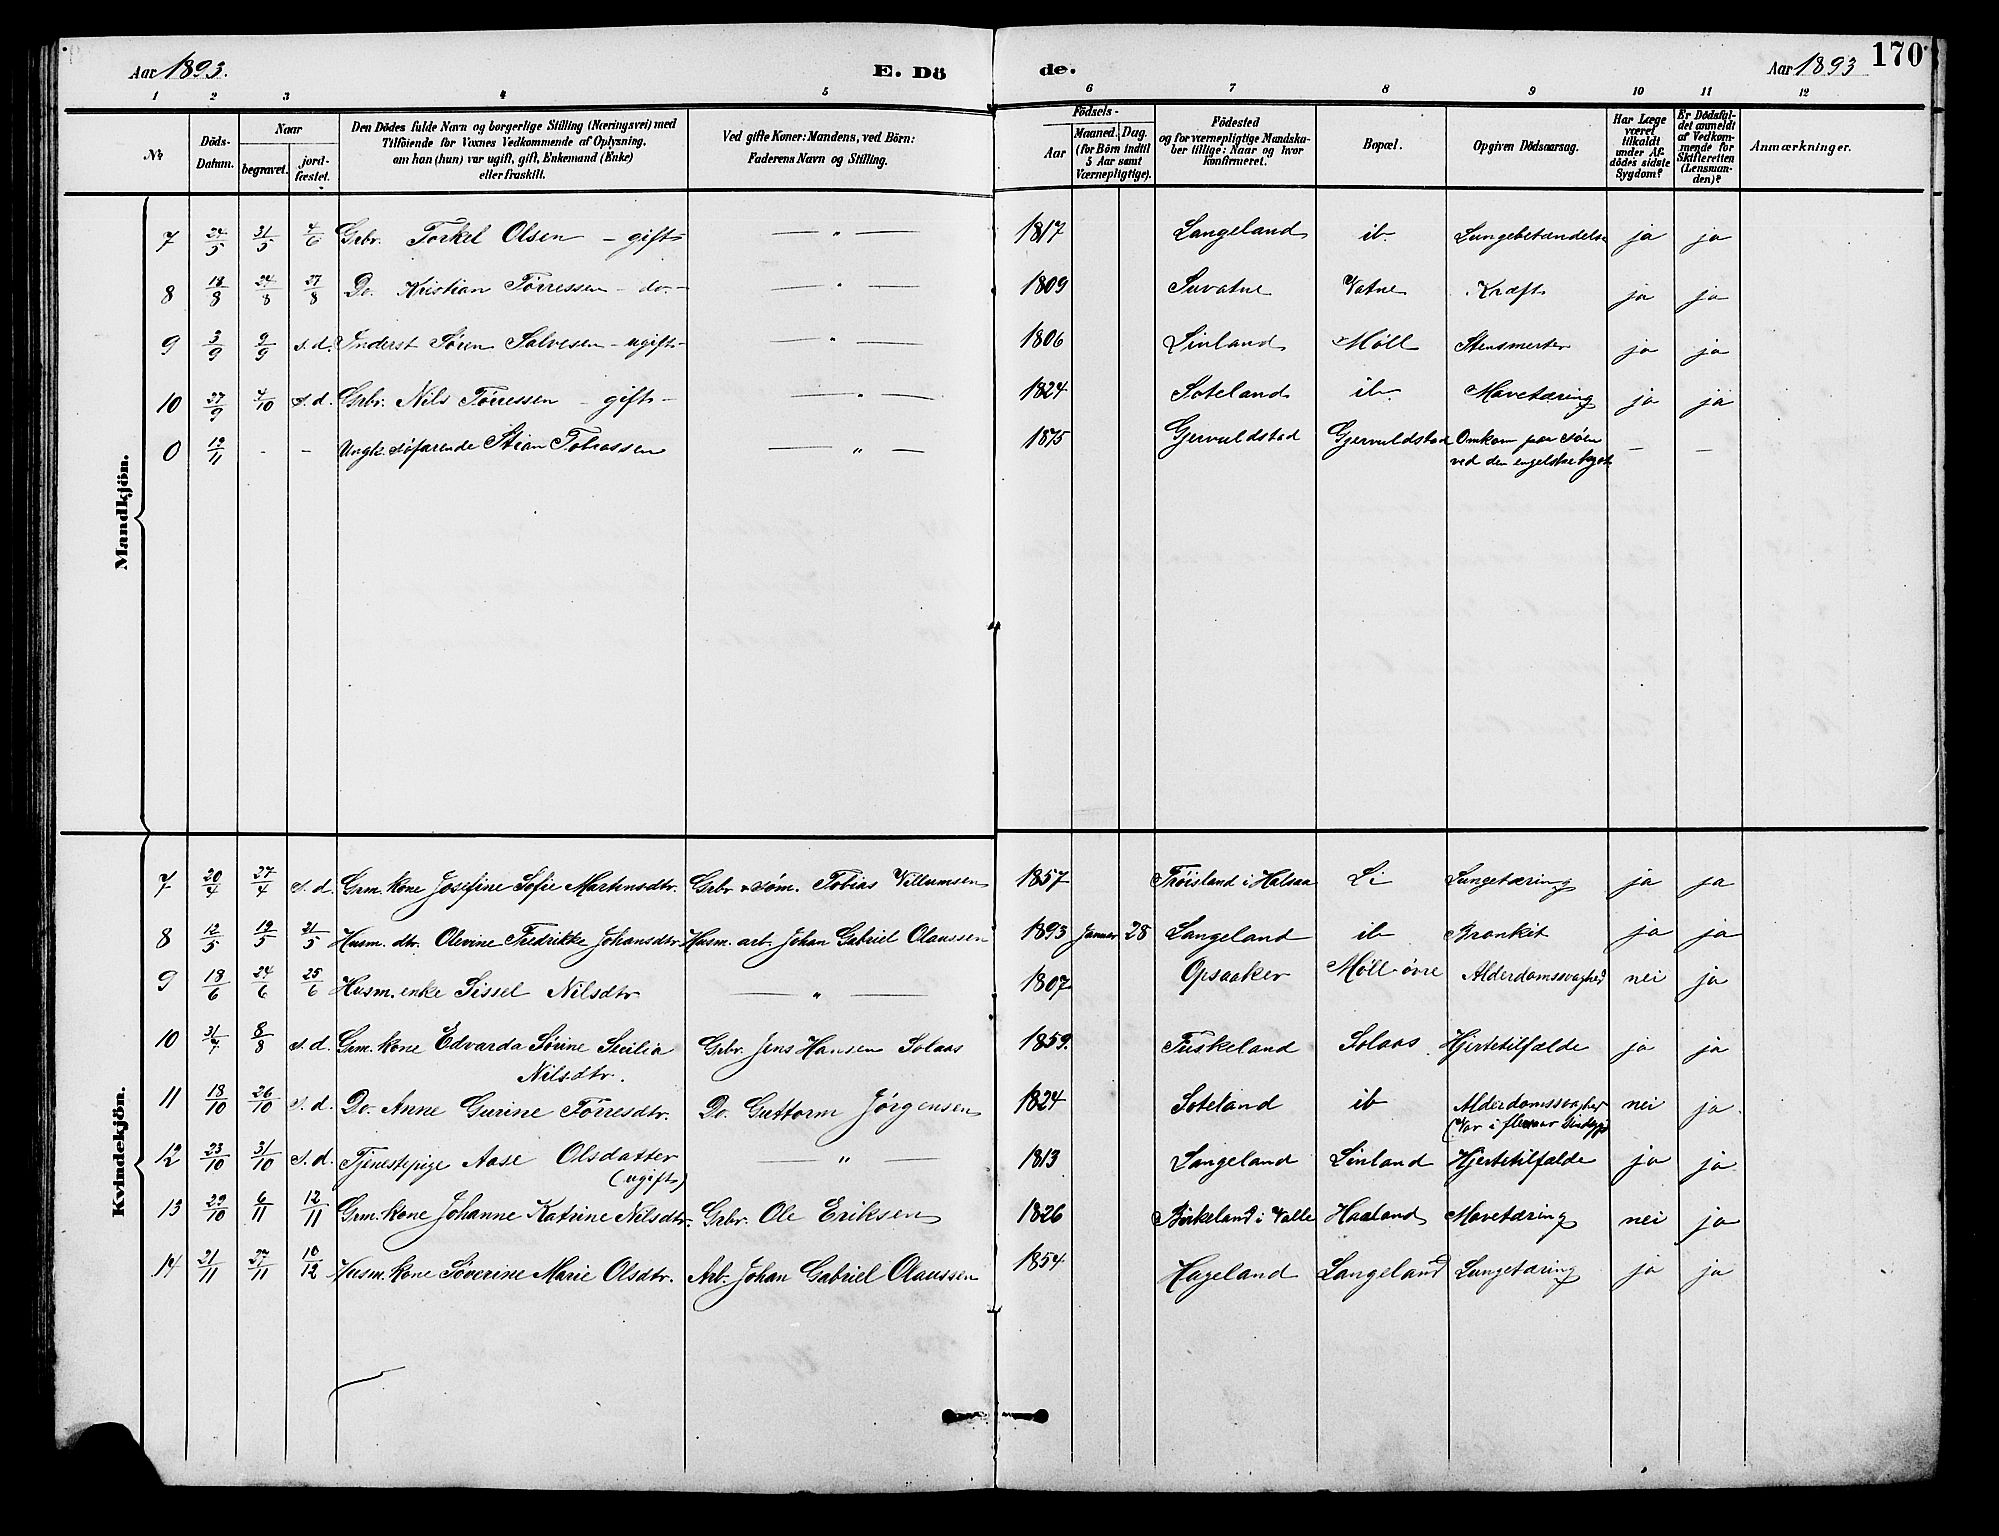 Aar 1893. E. Dö de. Aar 1893 170
1 2 3 4 5 6 7 8 9 10 11 12
№ Döds-Datum. Naar begravet. jord-fæstet. Den Dödes fulde Navn og borgerlige Stilling (Næringsvei) med Tilföiende for Voxnes Vedkommende af Oplysning, om han (hun) var ugift, gift, Enkemand (Enke) eller fraskilt. Ved gifte Koner: Mandens, ved Börn: Faderens Navn og Stilling. Födsels- Aar Maaned. Dag. (for Börn indtil 5 Aar samt Værnepligtige). Födested og for værnepligtige Mandskaber tillige: Naar og hvor konfirmeret. Bopæl. Opgiven Dödsaarsag. Har Læge været tilkaldt under Afdödes sidste Sygdom? Er Dödsfaldet anmeldt af Vedkommende for Skifteretten (Lensmanden)? Anmærkninger.
Mandkjön.
7 24/5 31/5 4/6 Grbr. Torkel Olsen - gift — " — 1817 Langeland ib. Lungebetændelse ja ja
8 18/8 24/8 27/8 Do. Kristian Tørressen - do. - — " — 1809 Vatne Kræft ja ja
9 3/9 9/9 s.d. Inderst Søren Salvesen - ugift - — " — 1806 Linland Møll ja ja
10 27/9 4/10 s.d. Grbr. Nils Tørressen - gift - — " — 1824 Soteland ib Mavetæring ja ja
0 19/11 - - Ungk. søfarende Stian Tobiassen — " — 1875 Gjervuldstad Gjervuldstad Omkom paa Søen — —
ved den engelske kyst
Kvindekjön.
7 20/4 27/4 s.d. Grm. kone Josefine Sofie Martinsdtr. Grbr. & søm. Tobias Villumsen 1857 Trøisland i Halsaa Li Lungetæring ja ja
8 12/5 19/5 21/5 Husm. dtr. Olevine Fredrikke Johansdtr. Husm. arb. Johan Gabriel Olaussen 1893 Januar 28 Langeland ib Bronkit ja ja
9 18/6 24/6 25/6 Husm. enke Sissel Nilsdtr — " — 1807 Opsaaker Møll øvre Alderdomssvaghed nei ja
10 31/7 8/8 s.d. Grm. kone Edvarda Sørine Secilia Grbr. Jens Hansen Solaas 1859. Fuskeland Solaas Hjertetilfælde ja ja
Nilsdtr.
11 18/10 26/10 s.d. Do. Anne Gurine Tørresdtr. Do. Guttorm Jørgensen 1824 Soteland ib Alderdomssvaghed nei ja
(Var i flere aar
12 23/10 31/10 s.d. Tjenestepige Aase Olsdatter — " — 1813 Langeland Linland Hjertetilfælde ja ja
(ugift)
13 29/10 6/11 12/11 Grm. kone Johanne Katrine Nilsdtr. Grbr. Ole Eriksen 1826 Birkeland i Valle Haaland Mavetæring nei ja
14 21/11 27/11 10/12 Husm. kone Søverine Marie Olsdtr. Arb. Johan Gabriel Olaussen 1854 Hageland Langeland Lungetæring ja ja